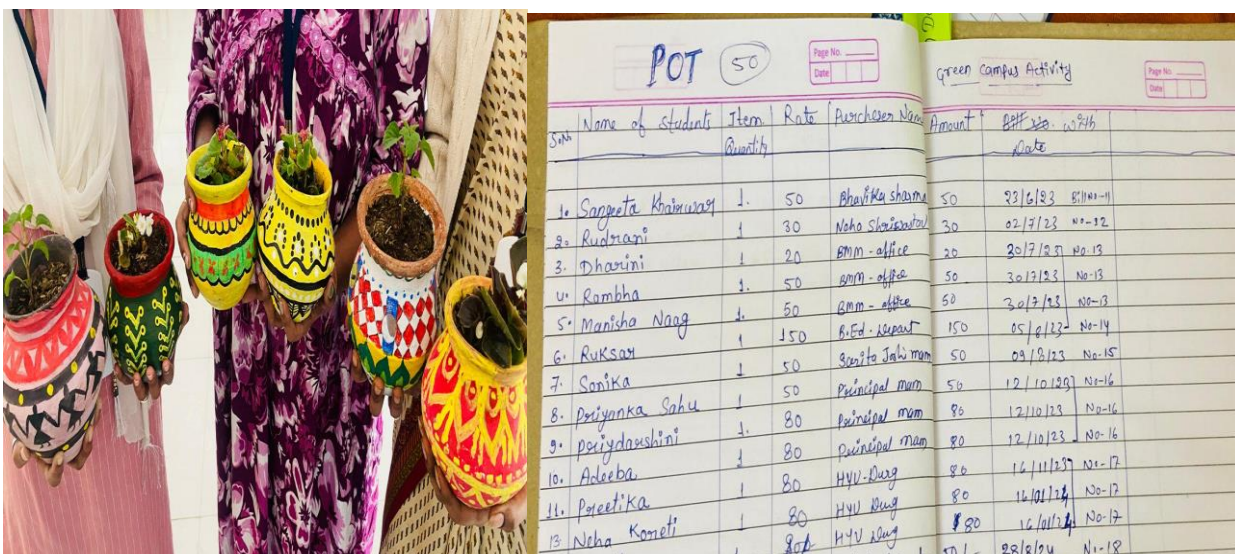 POT 50
Page No.
Date
Green Campus Activity
Page No.
Date
S.No Name of Students Item Quantity Rate Purcheser Name Amount Date
1. Sangeeta Khairwar 1. 50 sharma 50 23/6/23 Bill No-11
2. Rudrani 1 30 Neha 30 02/7/23 No-12
3. Dharini 1 20 BMM-office 20 30/7/23 No-13
4. Rambha 1. 50 BMM-office 50 30/7/23 No-13
5. Manisha Naag 1. 50 BMM-office 50 30/7/23 No-13
6. Ruksar 1 150 B.Ed. Depart 150 05/8/23 No-14
7. Sonika 1 50 Sarita Joshi mam 50 09/8/23 No-15
8. Priyanka Sahu 1 50 Principal mam 50 12/10/23 No-16
9. Priydarshini 1. 80 Principal mam 80 12/10/23 No-16
10. Adeeba 1 80 Principal mam 80 12/10/23 No-16
11. Preetika 1 80 HYV-Durg 80 No-17
13 Neha 1 80 HYV Durg 80 16/01/24 No-17
80 HYV Durg 80 16/01/24 No-17
28/8/24 No-18